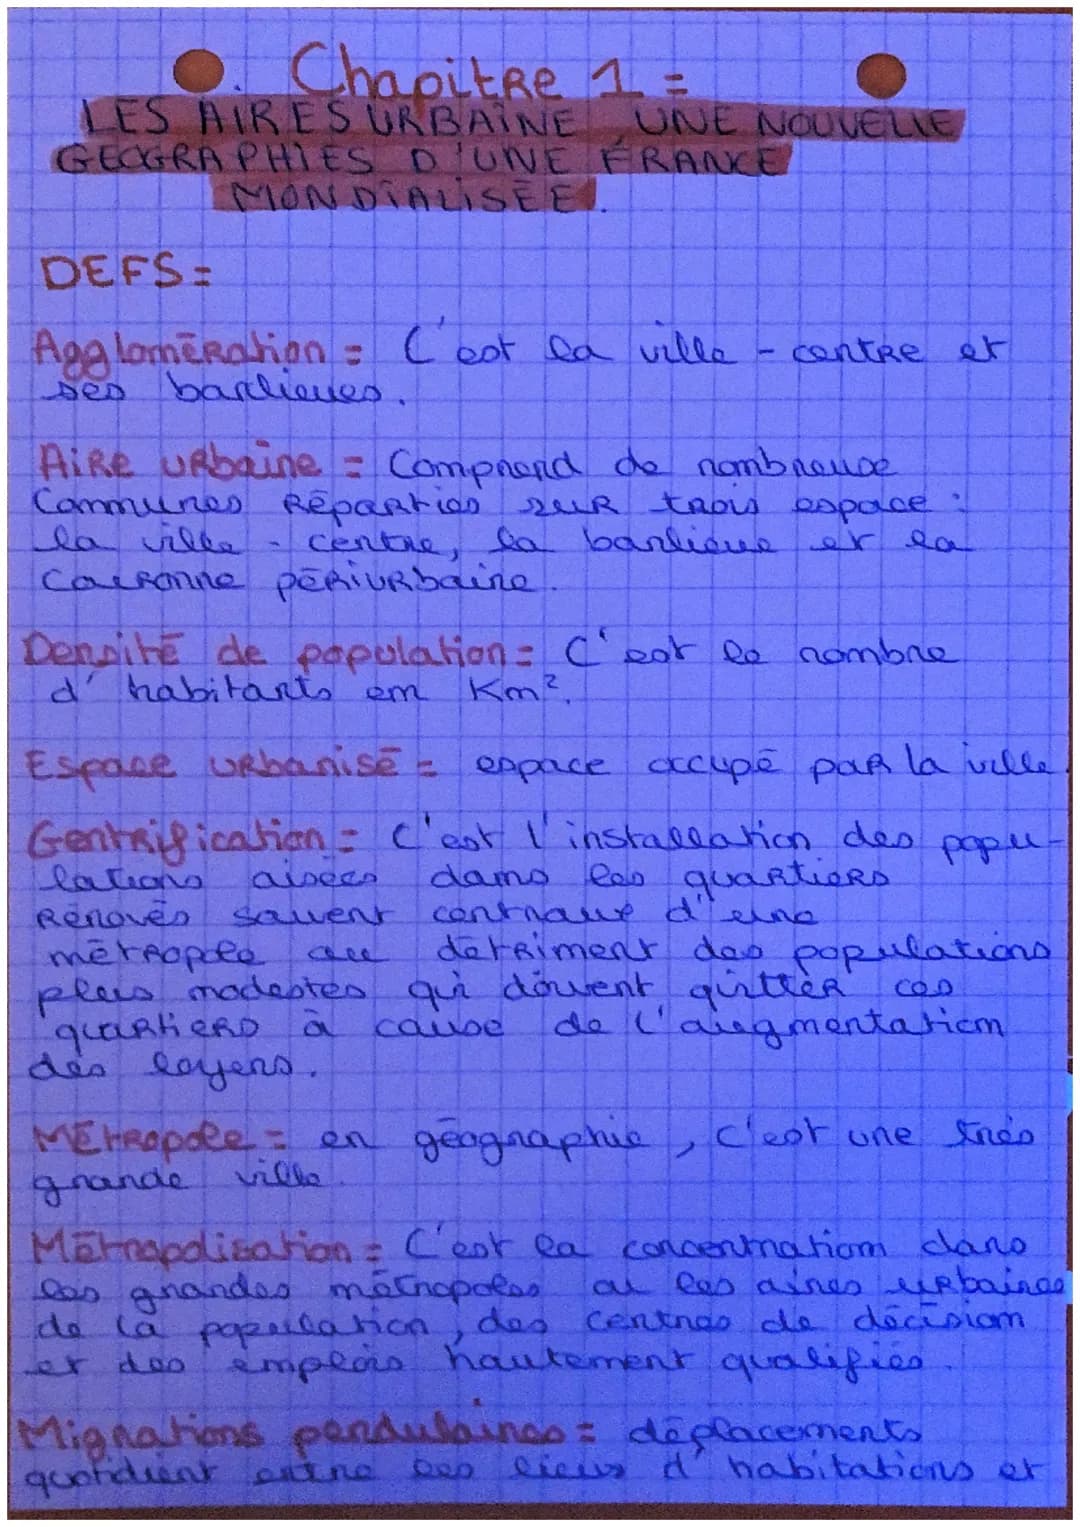 Chapitre 1 =
LES AIRES URBAINE, UNE NOUVELLE
GEOGRAPHIES D'UNE FRANCE
MONDIALISÉE.
DEFS =
Agglomération = C'est la ville - centre et
ses banlieues.
Aire urbaine = Comprend de nombreuse
Communes Réparties sur trois espace :
la ville - centre, la banlieue et la
Couronne périurbaine.
Densité de population = C'est le nombre
d'habitants em Km².
Espace urbanisé = espace occupé par la ville.
Gentrification = C'est l'installation des popu-
lations aisées dams les quartiers
Rénovés souvent centraux d'une
métropole au détriment des populations
plus modestes qui doivent quitter ces
quartiers à cause de l'augmentation
des loyers.
Métropole = en géographie, c'est une très
grande ville.
Métropolisation = C'est la concentration dans
les grandes métropoles ou les aires urbaines
de la population, des centres de décision
et des emplois hautement qualifiés.
Migrations pendulaires = déplacements
quotidient entre les lieux d'habitations et